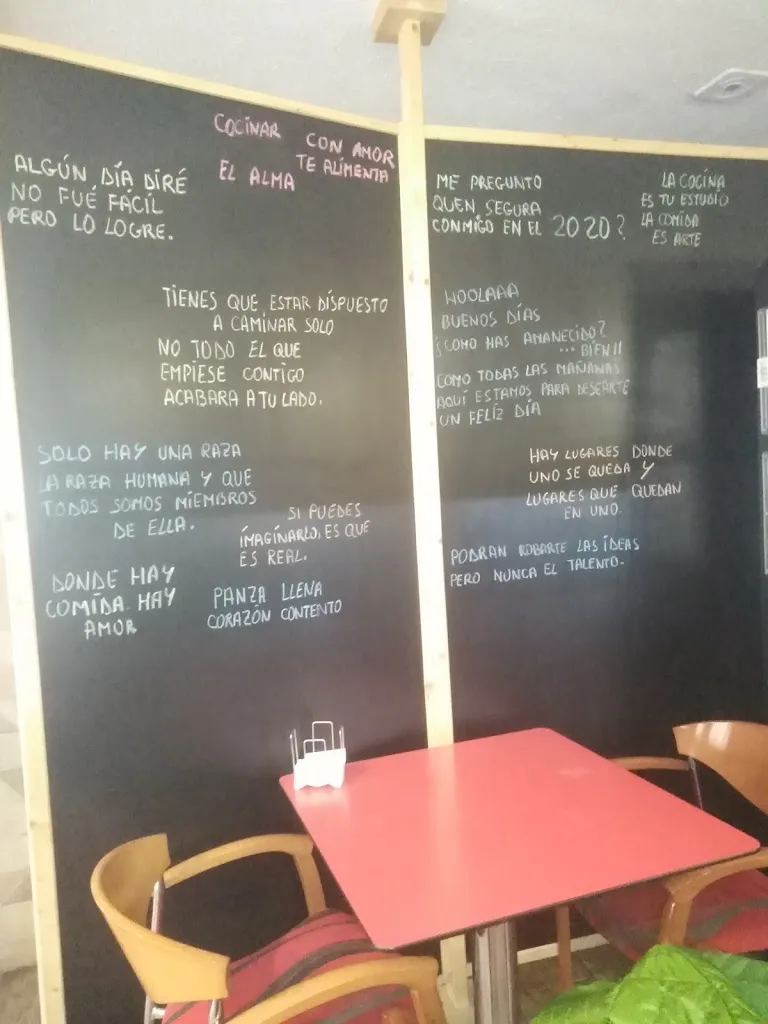 COCINAR CON AMOR
TE ALIMENTA
EL ALMA
ALGÚN DÍA DIRÉ
NO FUÉ FÁCIL
PERO LO LOGRE.
TIENES QUE ESTAR DISPUESTO
A CAMINAR SOLO
NO TODO EL QUE
EMPIESE CONTIGO
ACABARA A TU LADO.
SOLO HAY UNA RAZA
LA RAZA HUMANA Y QUE
TODOS SOMOS MIEMBROS
DE ELLA.
SI PUEDES
IMAGINARLO, ES QUE
ES REAL.
DONDE HAY
COMIDA HAY
AMOR
PANZA LLENA
CORAZÓN CONTENTO
ME PREGUNTO
QUEN SEGURA
CONMIGO EN EL 2020?
LA COCINA
ES TU ESTUDIO
LA COMIDA
ES ARTE
HOOLAAA
BUENOS DÍAS
¿COMO HAS AMANECIDO?
... BIEN!!
COMO TODAS LAS MAÑANAS
AQUÍ ESTAMOS PARA DESEARTE
UN FELÍZ DÍA
HAY LUGARES DONDE
UNO SE QUEDA Y
LUGARES QUE QUEDAN
EN UNO.
PODRAN ROBARTE LAS IDEAS
PERO NUNCA EL TALENTO.